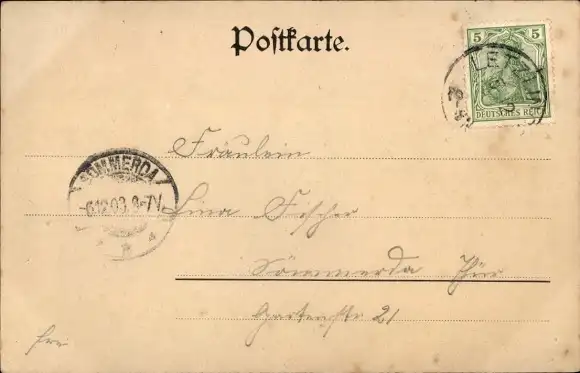 Postkarte.
5 5
DEUTSCHES REICH
Fräulein
SÖMMERDA
6.12.03. 6-7V.
Lina Fischer
Sömmerda Thür
Gartenstr 21
frei